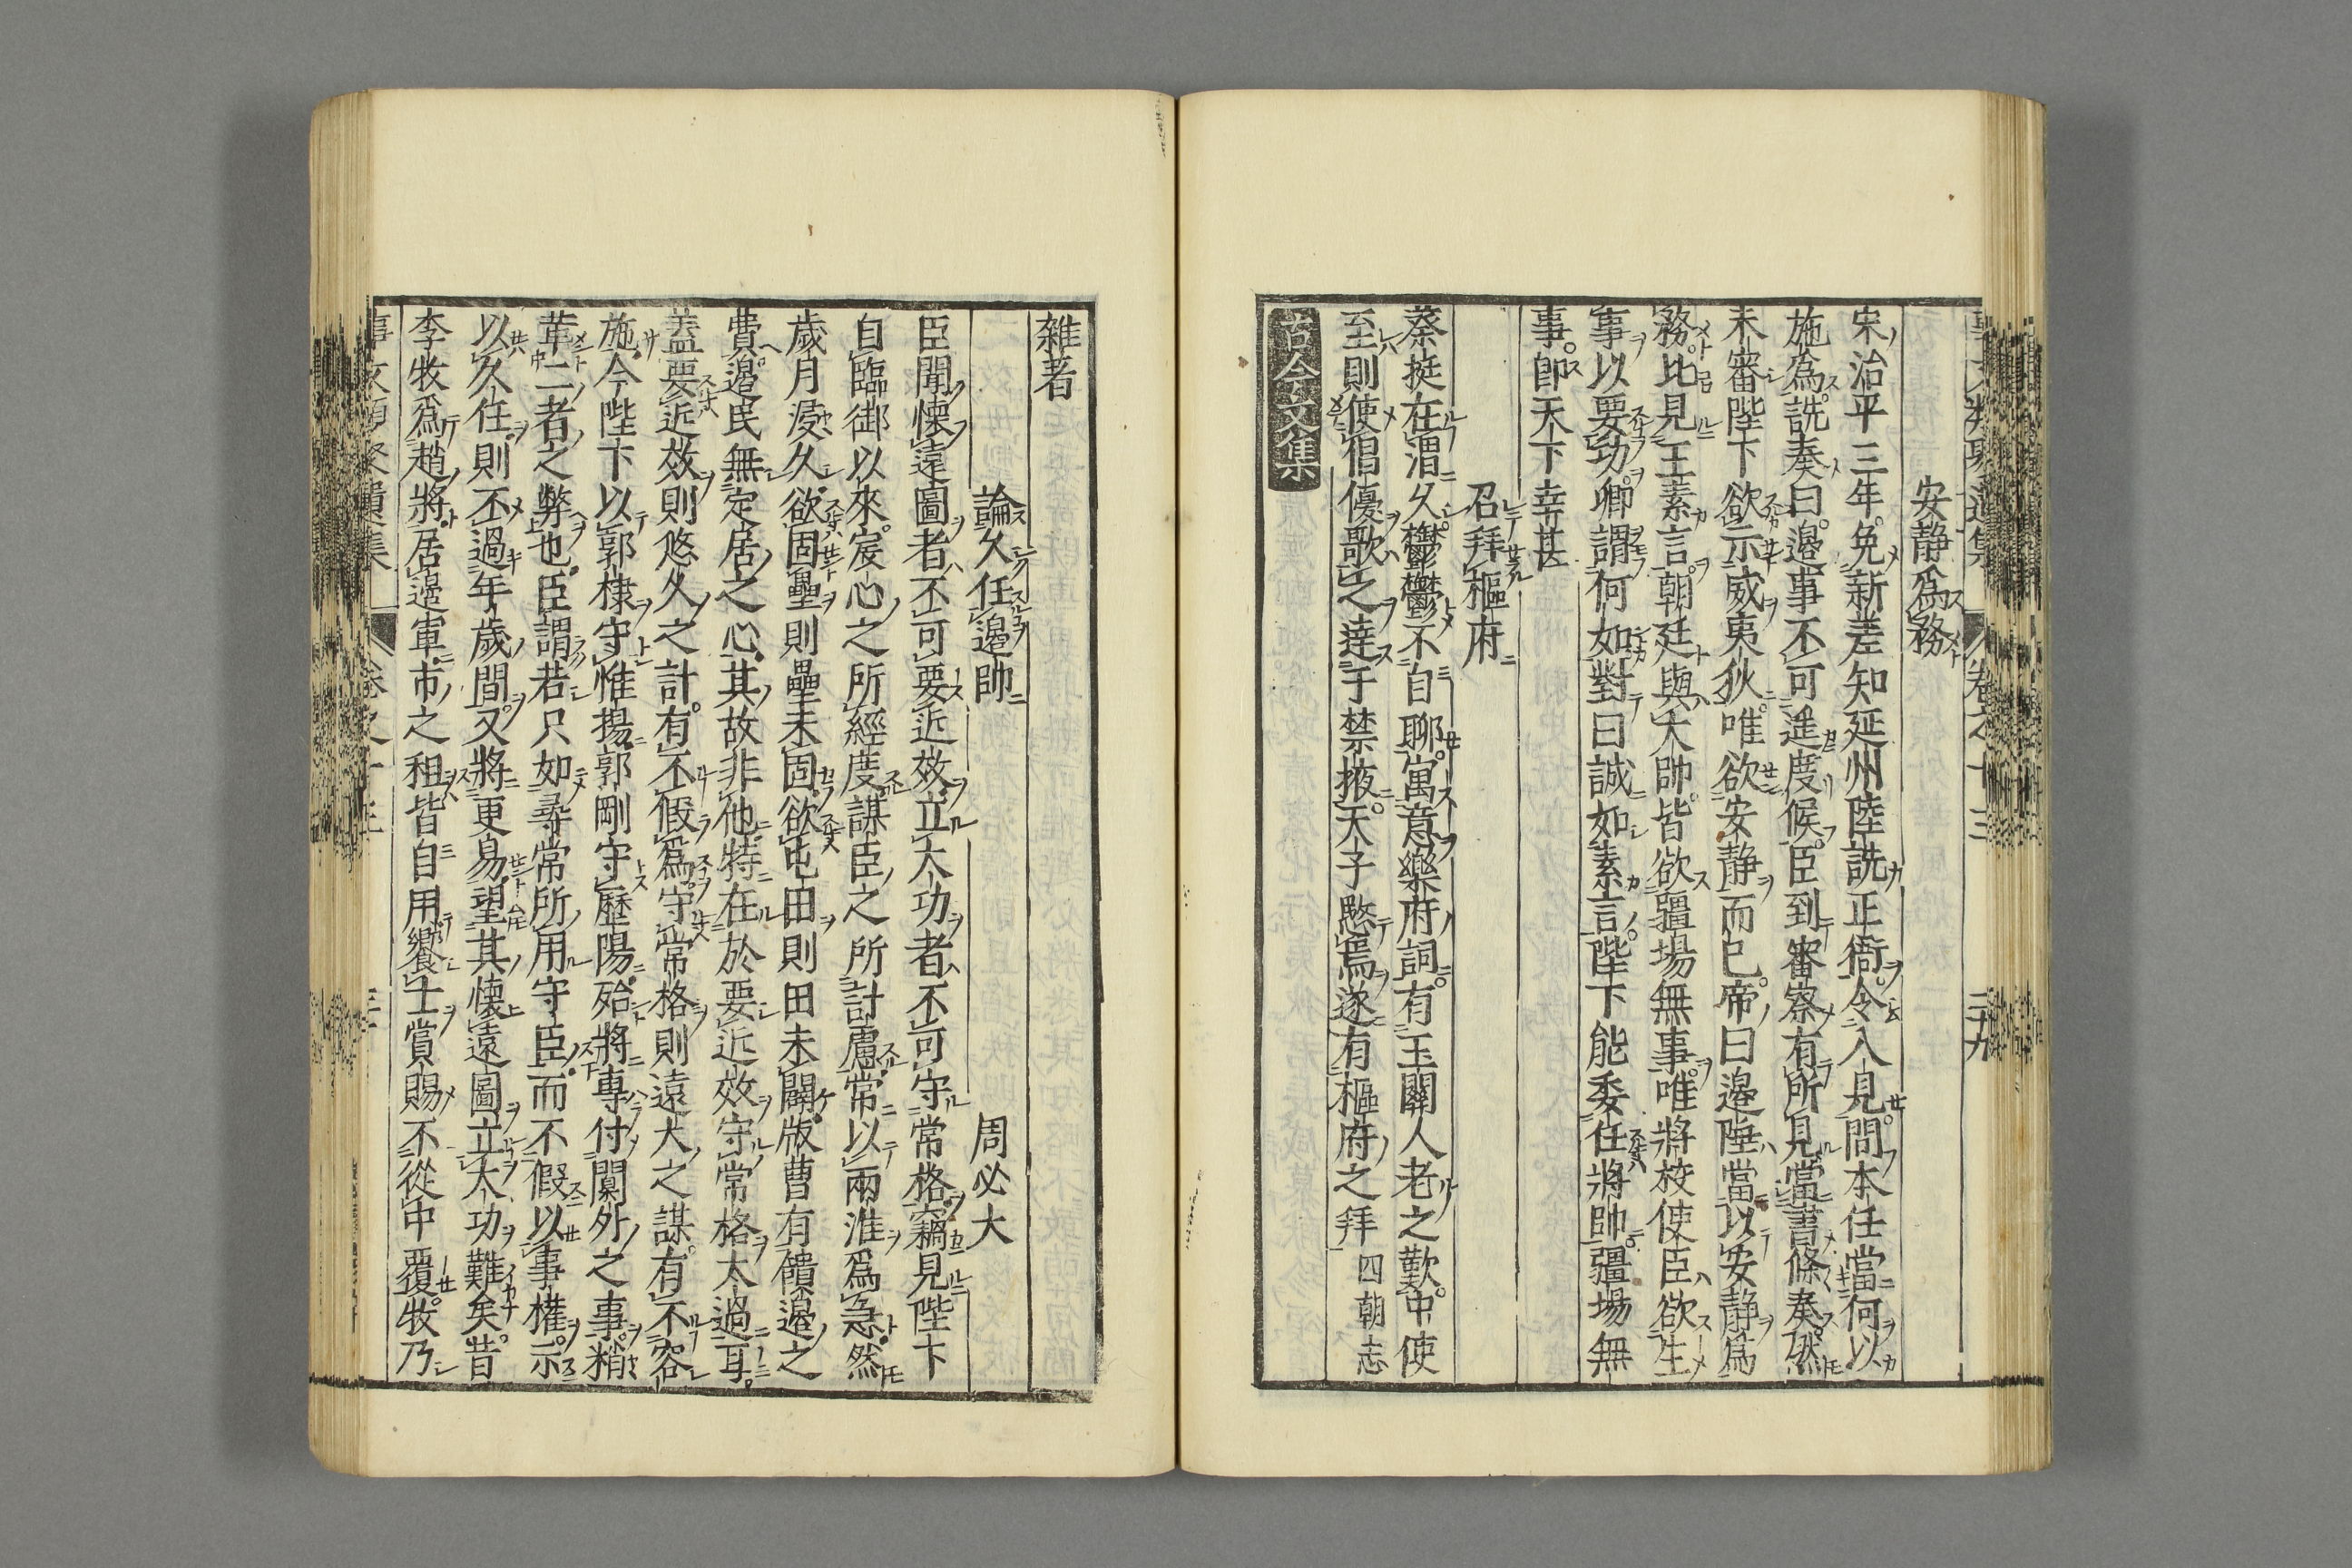 安静為務
宋治平三年免新差知延州陸詵正衙令入見問本任當何以
施為詵奏曰邉事不可遥度候臣到審察有所見當書條奏然
未審陛下欲示威夷狄唯欲安静而已帝曰邉陲當以安静為
務比見王素言朝廷與大帥皆欲疆埸無事唯將校使臣欲生
事以要功卿謂何如對曰誠如素言陛下能委任將帥疆埸無
事即天下幸甚
召拜樞府
蔡挺在渭久鬱鬱不自聊寓意樂府詞有玉關人老之歎中使
至則使倡優歌之達于禁掖天子愍焉遂有樞府之拜 四朝志
古今文集
雜著
論久任邉帥 周必大
臣聞懐遠圖者不可要近效立大功者不可守常格竊見陛下
自臨御以來宸心之所經度謀臣之所計慮常以兩淮為急然
歳月浸久欲固壘則壘未固欲屯田則田未闢版曹有饋邉之
費邉民無定居之心其故非他特在於要近效守常格太過耳
蓋要近效則悠久之計有不假為守常格則遠大之謀有不容
施今陛下以郭棣守惟揚郭剛守歷陽殆將專付閫外之事稍
革二者之弊也臣謂若只如尋常所用守臣而不假以事權示
以久任則不過年歳間又將更易望其懐遠圖立大功難矣昔
李牧為趙將居邉軍市之租皆自用饗士賞賜不從中覆牧乃